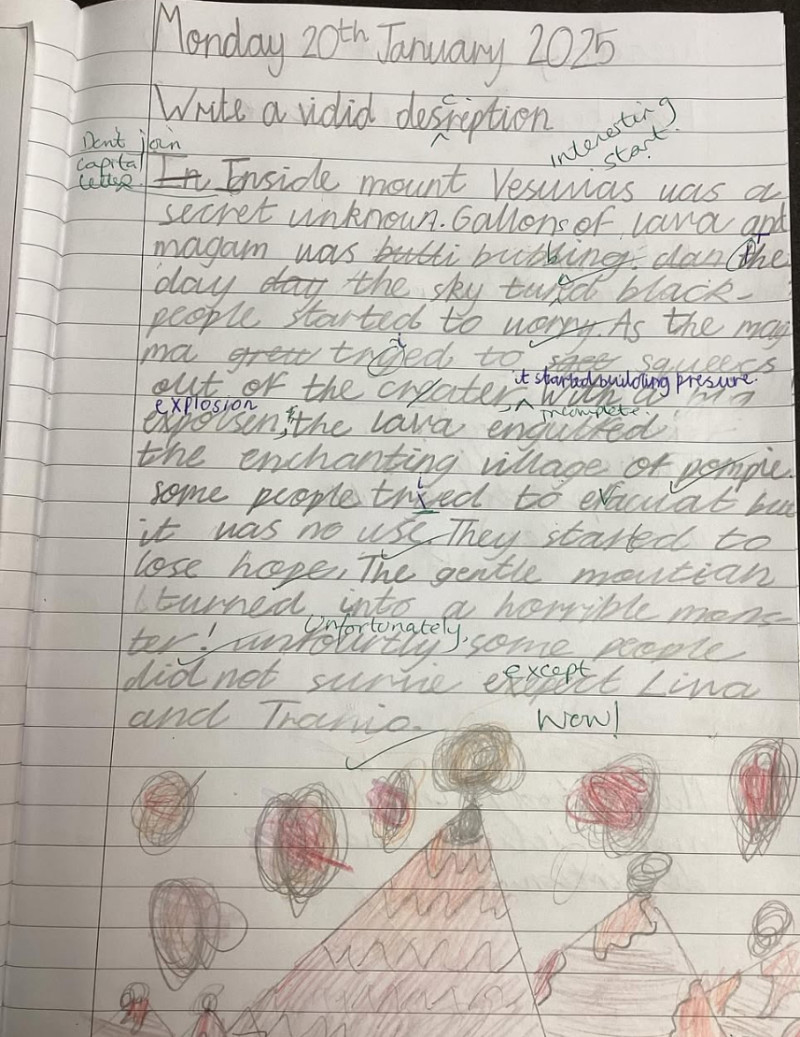 Monday 20th January 2025
Write a vidid desription
c
Interesting start.
Don't join capital letter.
In Inside mount Vesuvias was a
secret unknown. Gallons of lava and
magam was butti bubbling. the
day day the sky black
people started to worry. As the mag
ma grew to squeecs
out of the creater with a
it started building pressure.
incomplete.
explosion
expolsen, the lava engulfed
the enchanting village of pompie.
some people to evacuat but
it was no use. They started to
lose hope. The gentle moutian
turned into a horrible mons-
ter! unfourtly some people
Unfortunately,
did not survie exepect Livia
except
and Tranio.
Wow!